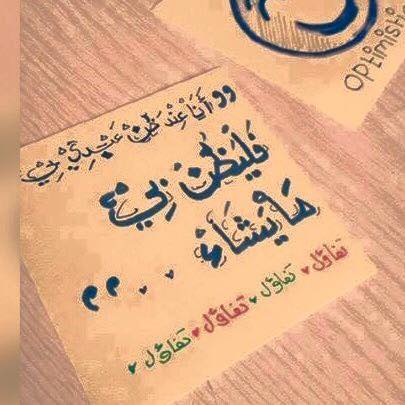 Optimistic
,, أَنَا عِنْدَ ظَنِّ عَبْدِيْ بِيْ
فَليَظُنَّ بِيْ
مَا يَشَاءُ . . . ,,
تفاؤل ♥ تفاؤل ♥ تفاؤل ♥ تفاؤل ♥ تفاؤل ♥